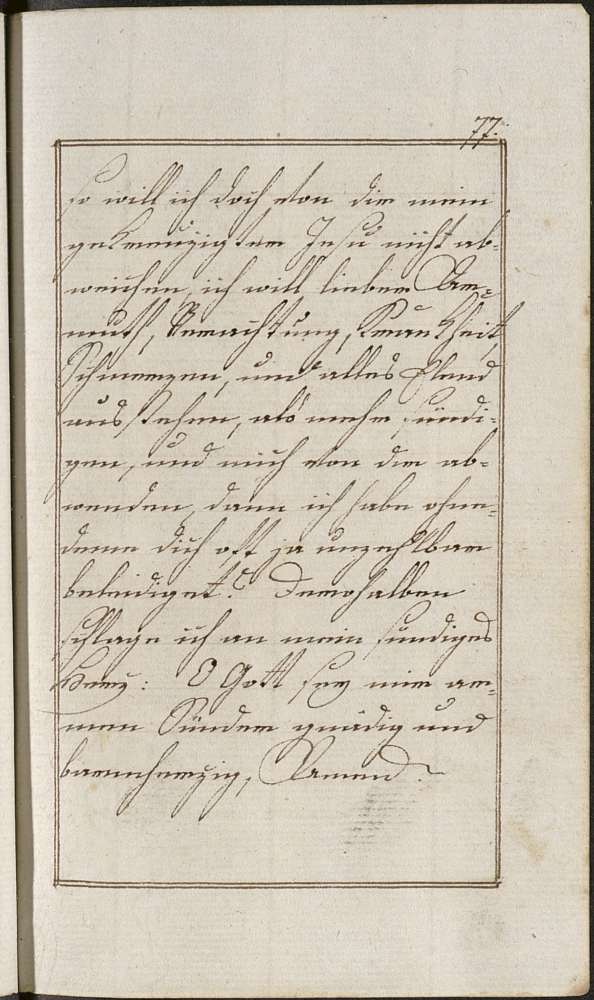 77.
so will ich doch von dir mein
gekreuzigter Jesu nicht ab-
weichen, ich will lieber Ar-
muth, Verachtung, Krankheit,
Schmerzen, und alles Elend
ausstehen, als mehr sündi-
gen, und mich von dir ab-
wenden, dann ich habe ohne-
deme dich oft ja unzehlbar
beleidiget. Derohalben
schlage ich an mein sündiges
Herz: O Gott sey mir ar-
men Sünder gnädig und
barmherzig, Amen.